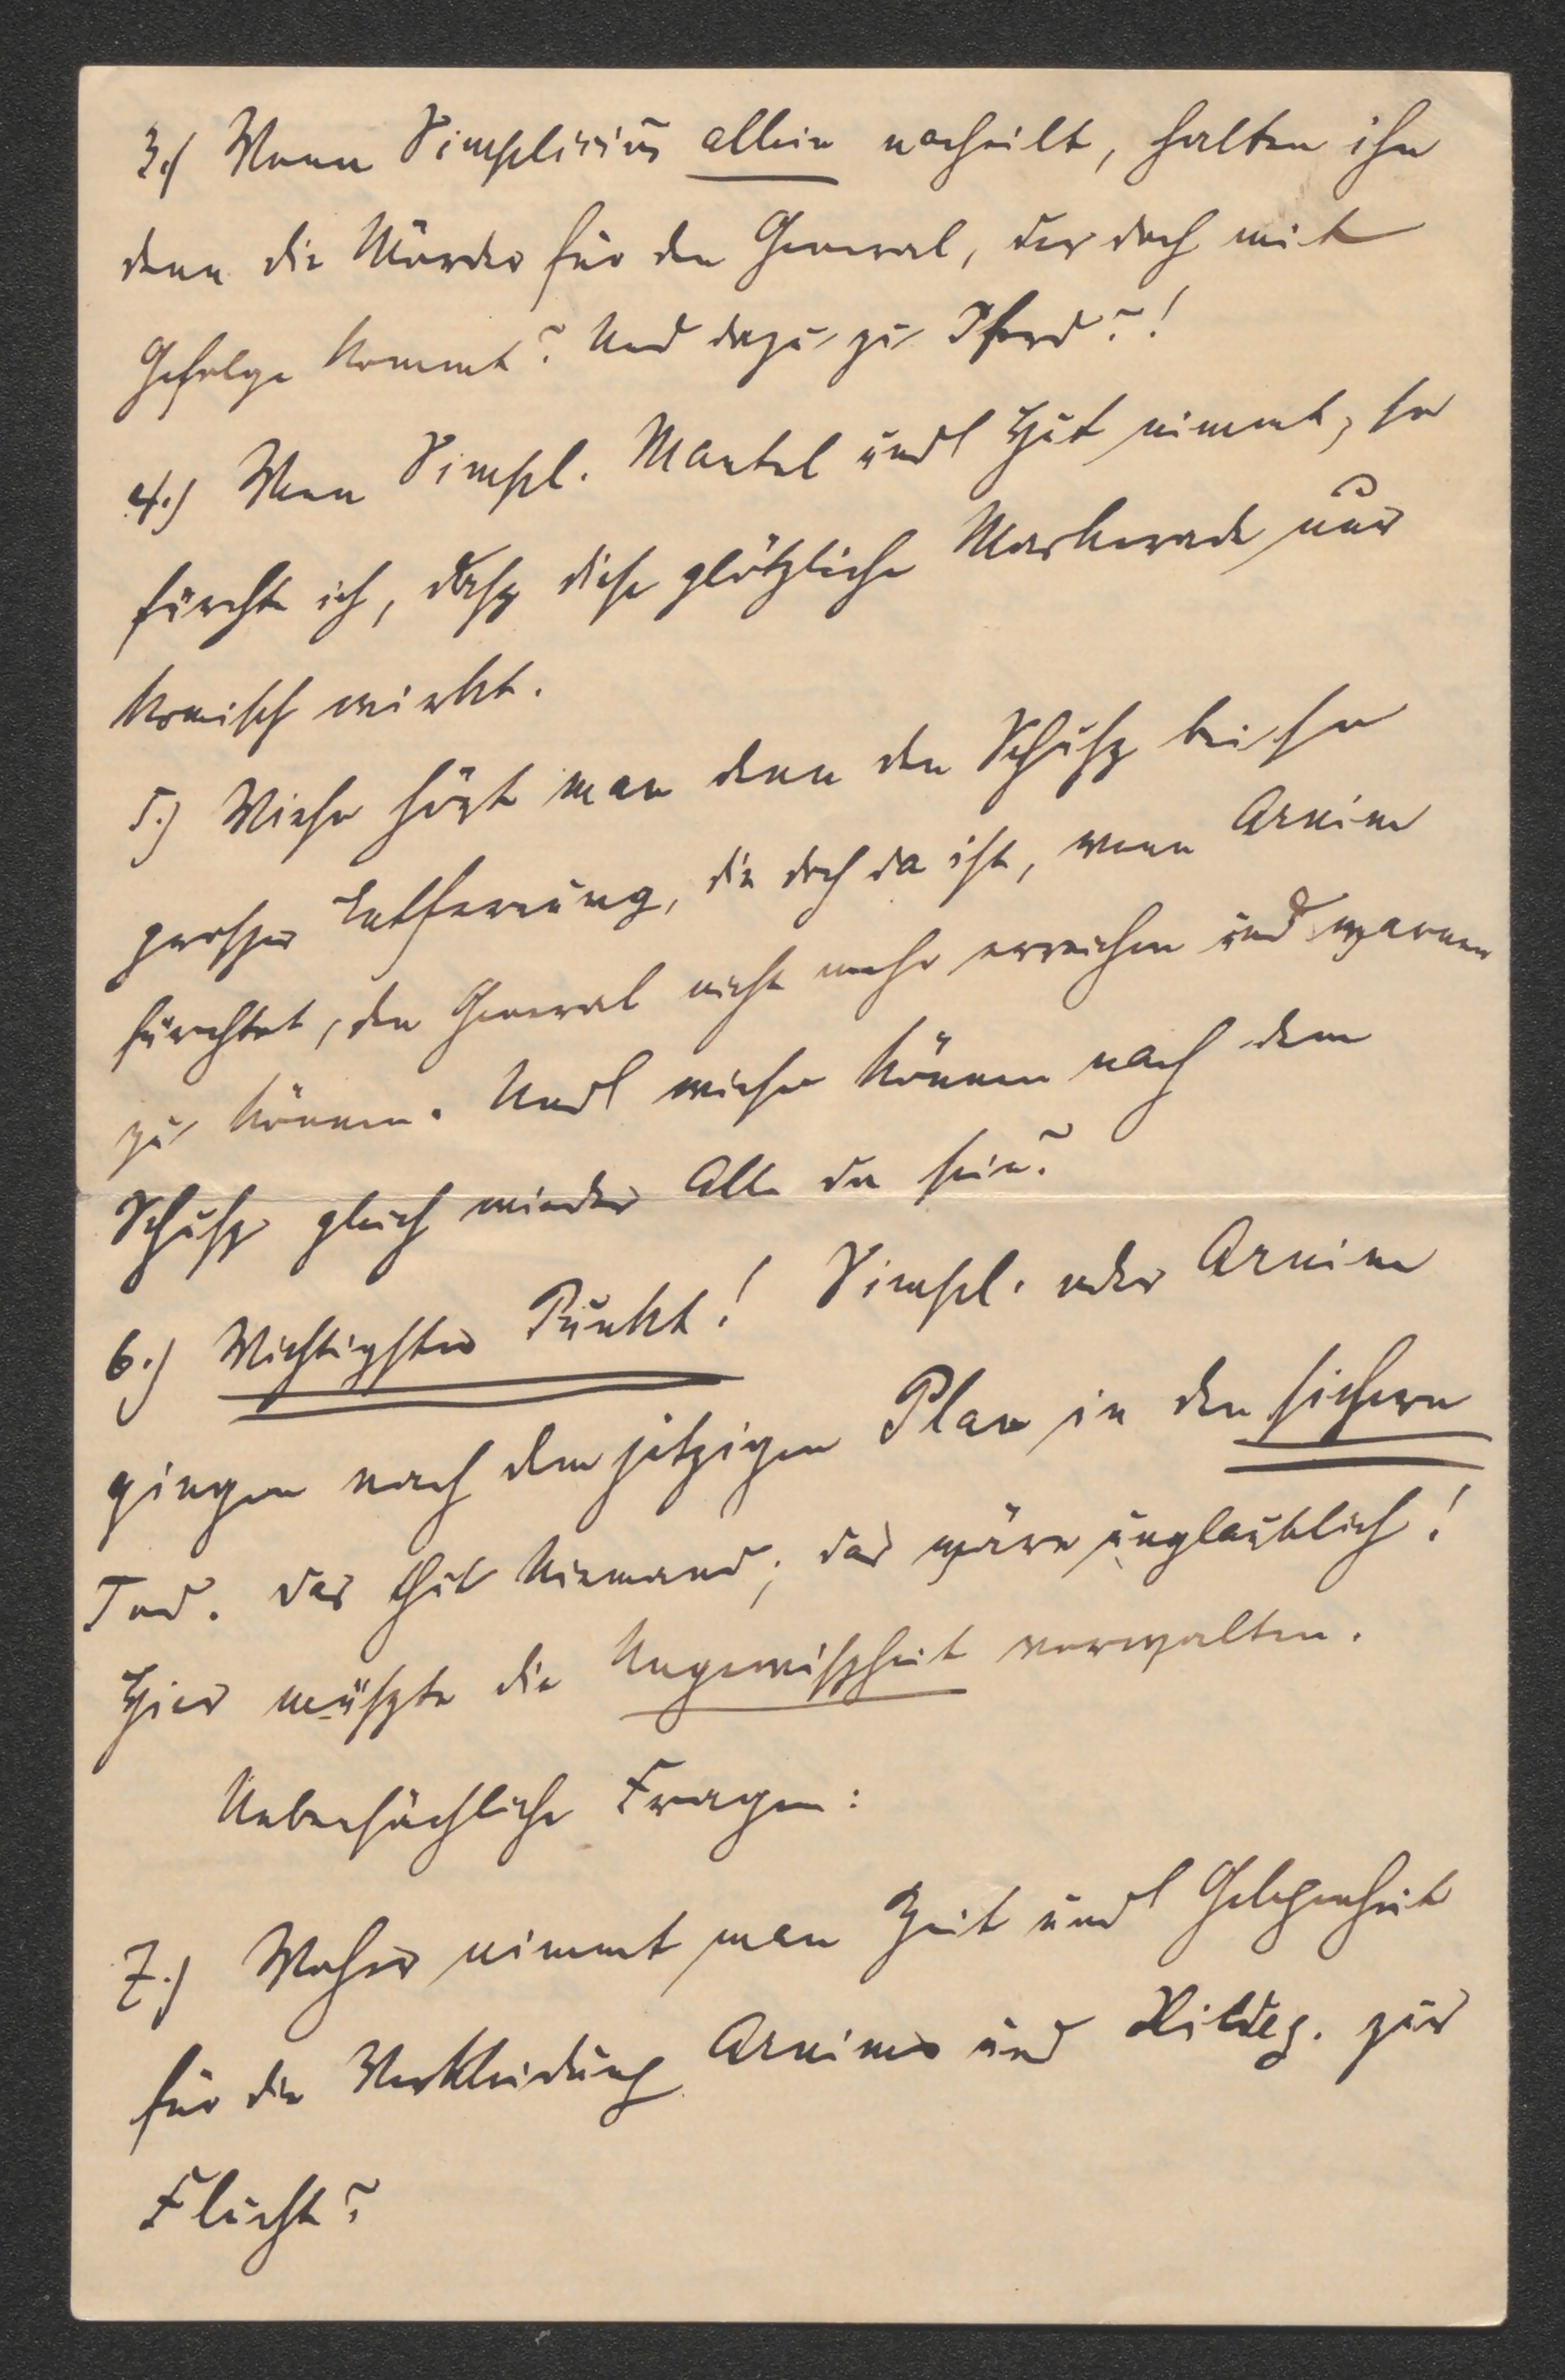 3.) Wenn Simplicius allein nacheilt, halten ihn
denn die Mörder für den General, der doch mit
Gefolge kommt? Und dazu zu Pferd?!
4.) Wenn Simpl. Mantel und Hut nimmt, so
fürchte ich, dass diese plötzliche Maskerade nur
komisch wirkt.
5.) Wieso hört man denn den Schuss bei so
grosser Entfernung, die doch da ist, wenn Arnim
fürchtet, den General nicht mehr erreichen und warnen
zu können. Und wieso können nach dem
Schuss gleich wieder Alle da sein?
6.) Wichtigster Punkt! Simpl. oder Arnim
gingen nach dem jetzigen Plan in den sichern
Tod. Das thut Niemand; das wäre unglaublich!
Hier müsste die Ungewissheit vorwalten.
Nebensächliche Fragen:
7.) Woher nimmt man Zeit und Gelegenheit
für die Verkleidung Arnims und Hildeg. zur
Flucht?